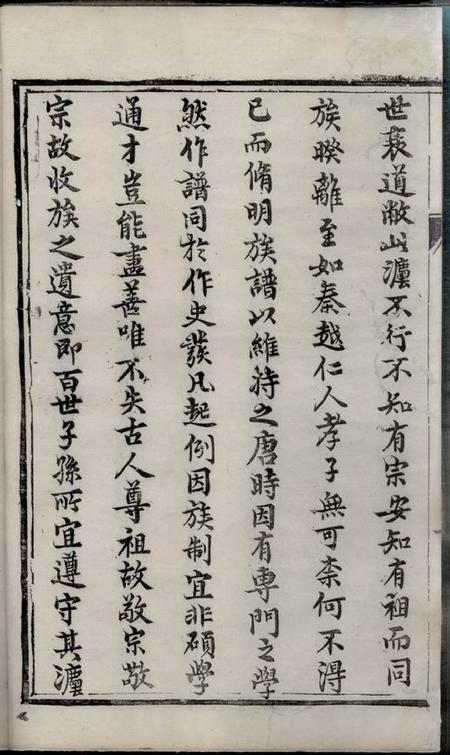 世衰道敝此灋不行不知有宗安知有祖而同
族暌離至如秦越仁人孝子無可柰何不得
已而脩明族譜以維持之唐時因有専門之學
然作譜同於作史發凡起例因族制宜非碩學
通才豈能盡善唯不失古人尊祖故敬宗敬
宗故收族之遺意即百世子孫所宜遵守其灋